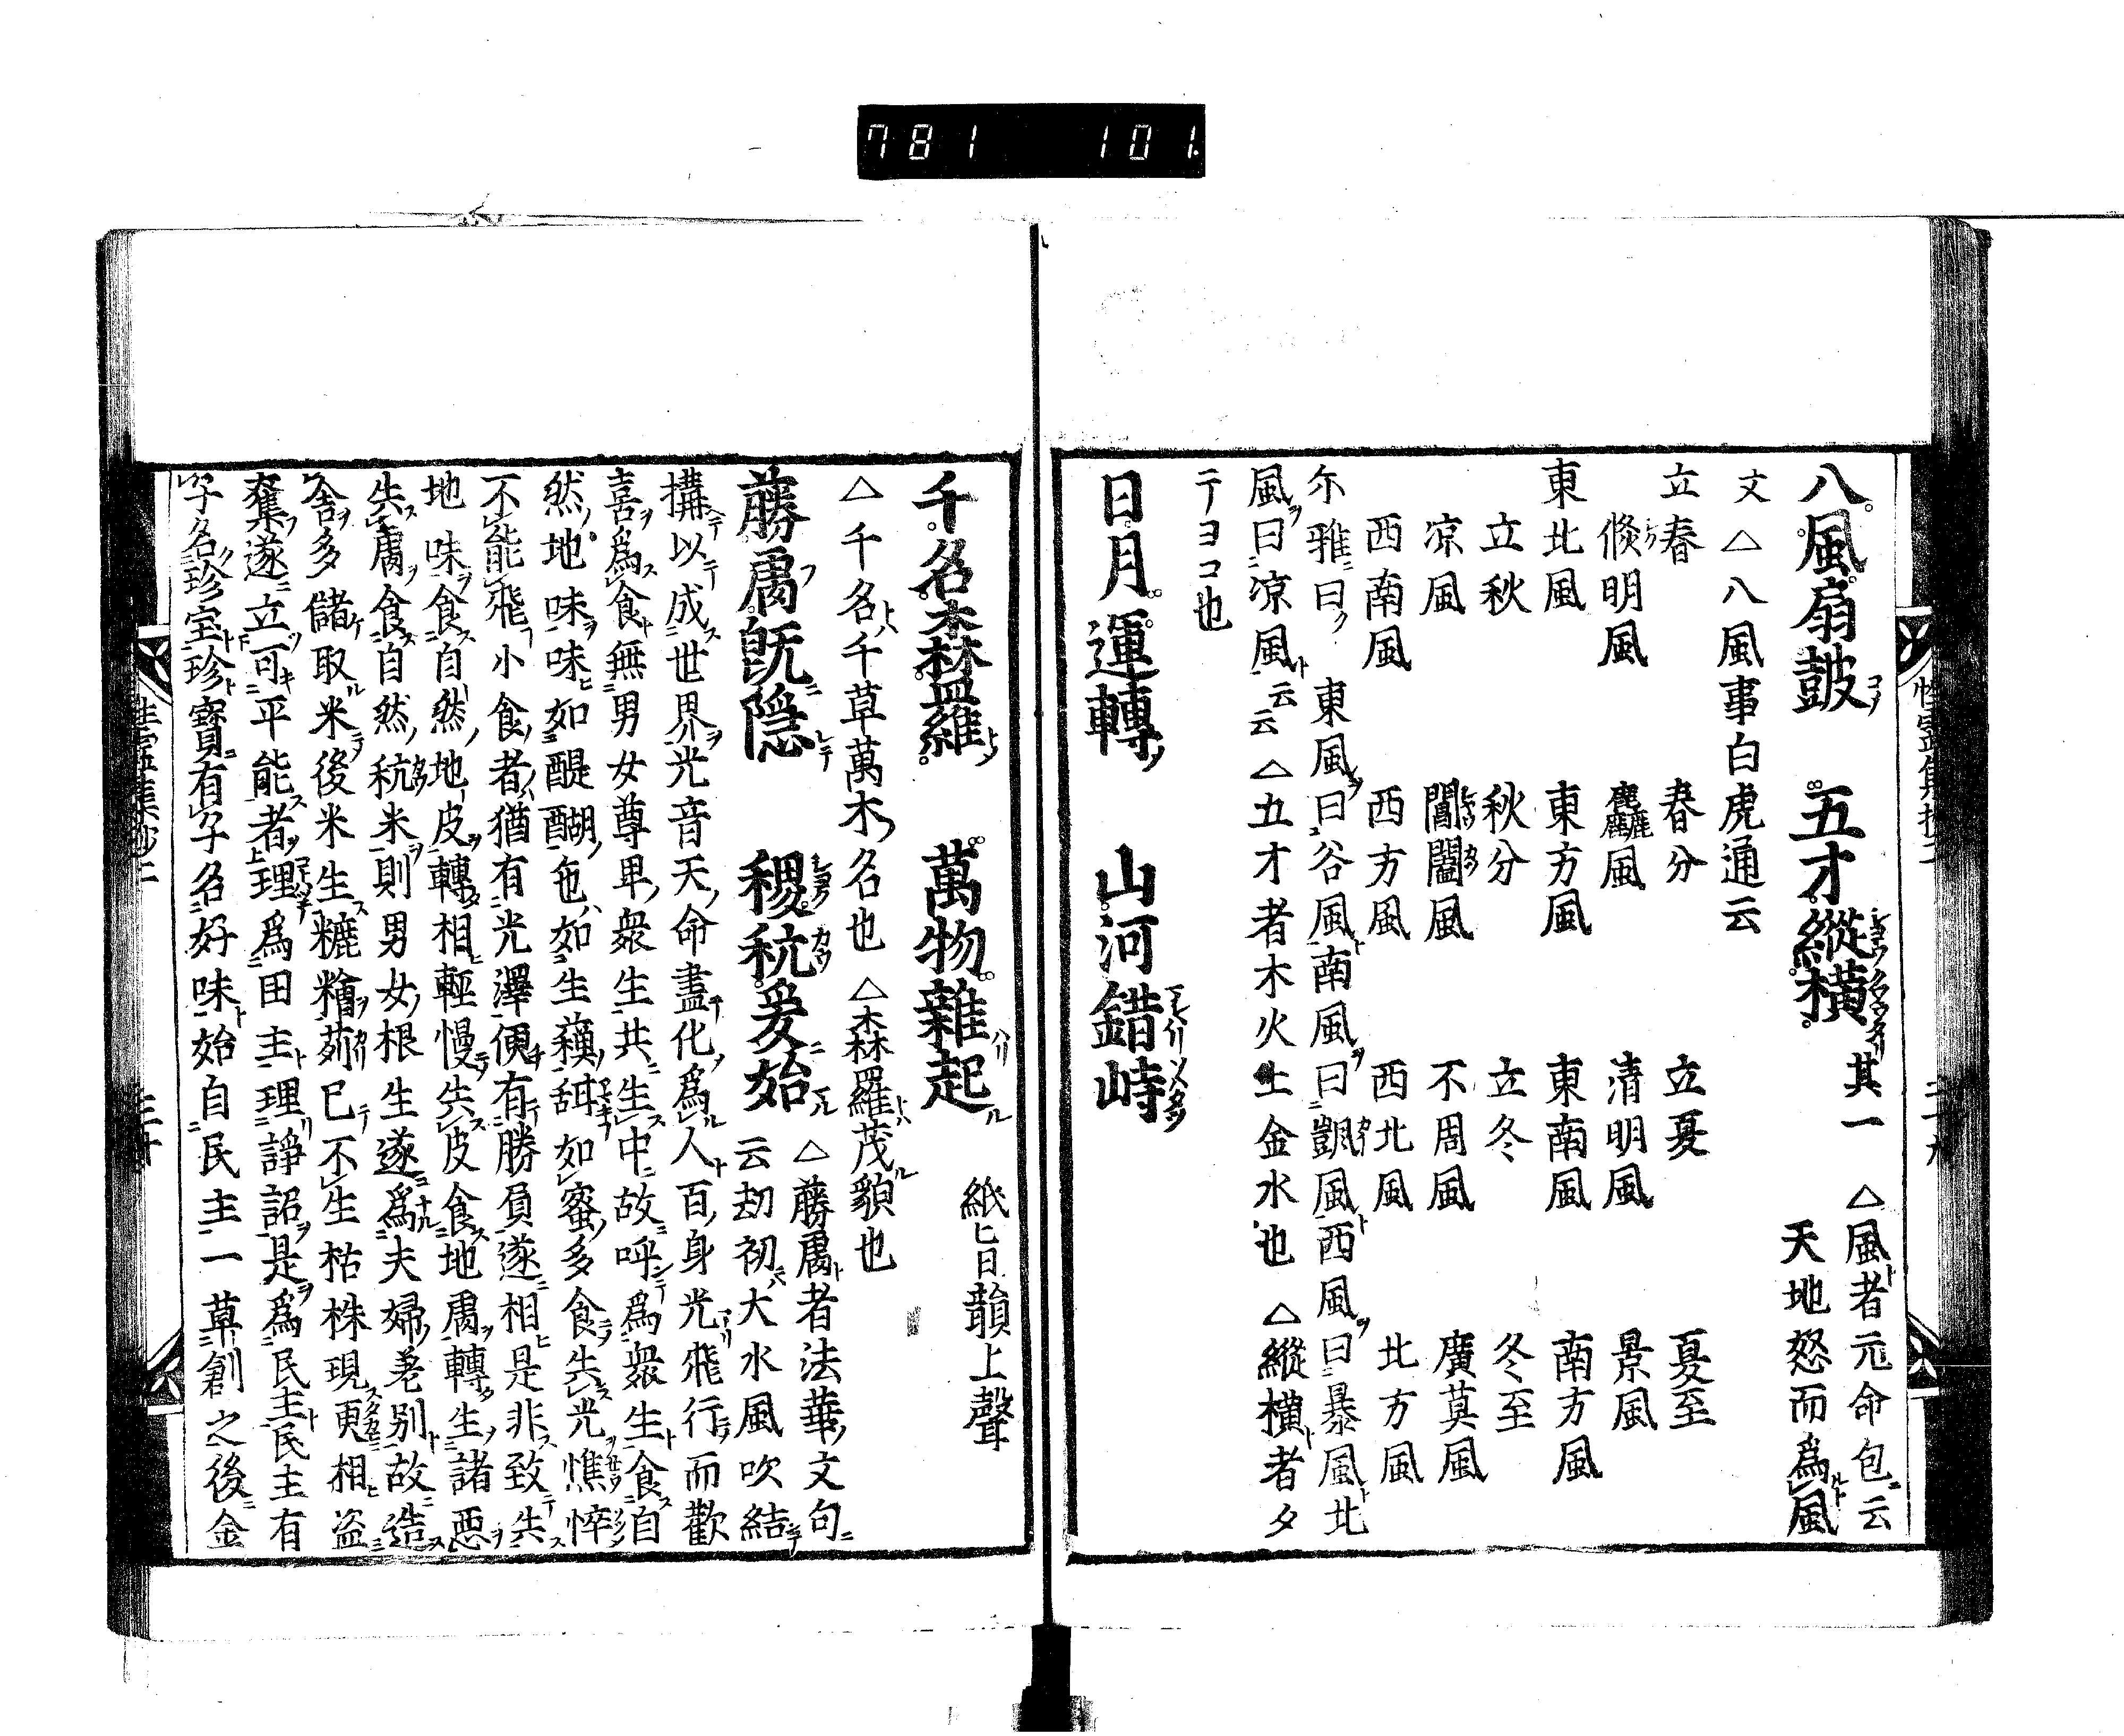 781 101
八風扇鼓 五才縱橫 其一 △風者元命包云
天地怒而為風
文 △八風事白虎通云
立春 春分 立夏 夏至
條明風 麤風 清明風 景風
東北風 東方風 東南風 南方風
立秋 秋分 立冬 冬至
凉風 閶闔風 不周風 廣莫風
西南風 西方風 西北風 北方風
尓雅曰 東風曰谷風南風曰凱風西風曰暴風北
風曰凉風云云 △五才者木火土金水也 △縱橫者タ
テヨコ也
日月運轉 山河錯峙
千名森羅 萬物雜起 紙匕日韻上聲
△千名千草萬木名也 △森羅茂貌也
藤膚既隱 稷秔爰始 △藤膚者法華文句
云劫初大水風吹結
搆以成世界光音天命盡化為人百身光飛行而歡
喜為食無男女尊卑衆生共生中故呼為衆生食自
然地味味如醍醐色如生蘓甜如蜜多食失光憔悴
不能飛小食者猶有光澤便有勝負遂相是非致失
地味食自然地皮轉相輕慢失皮食地膚轉生諸惡
失膚食自然秔米則男女根生遂為夫婦差別故造
舍多儲取米後米生糠糩苅已不生枯株現更相盗
奪遂立一可平能者理為田主理諍詔是為民主民主有
子名珍宝珍寶有子名好味始自民主一草創之後金